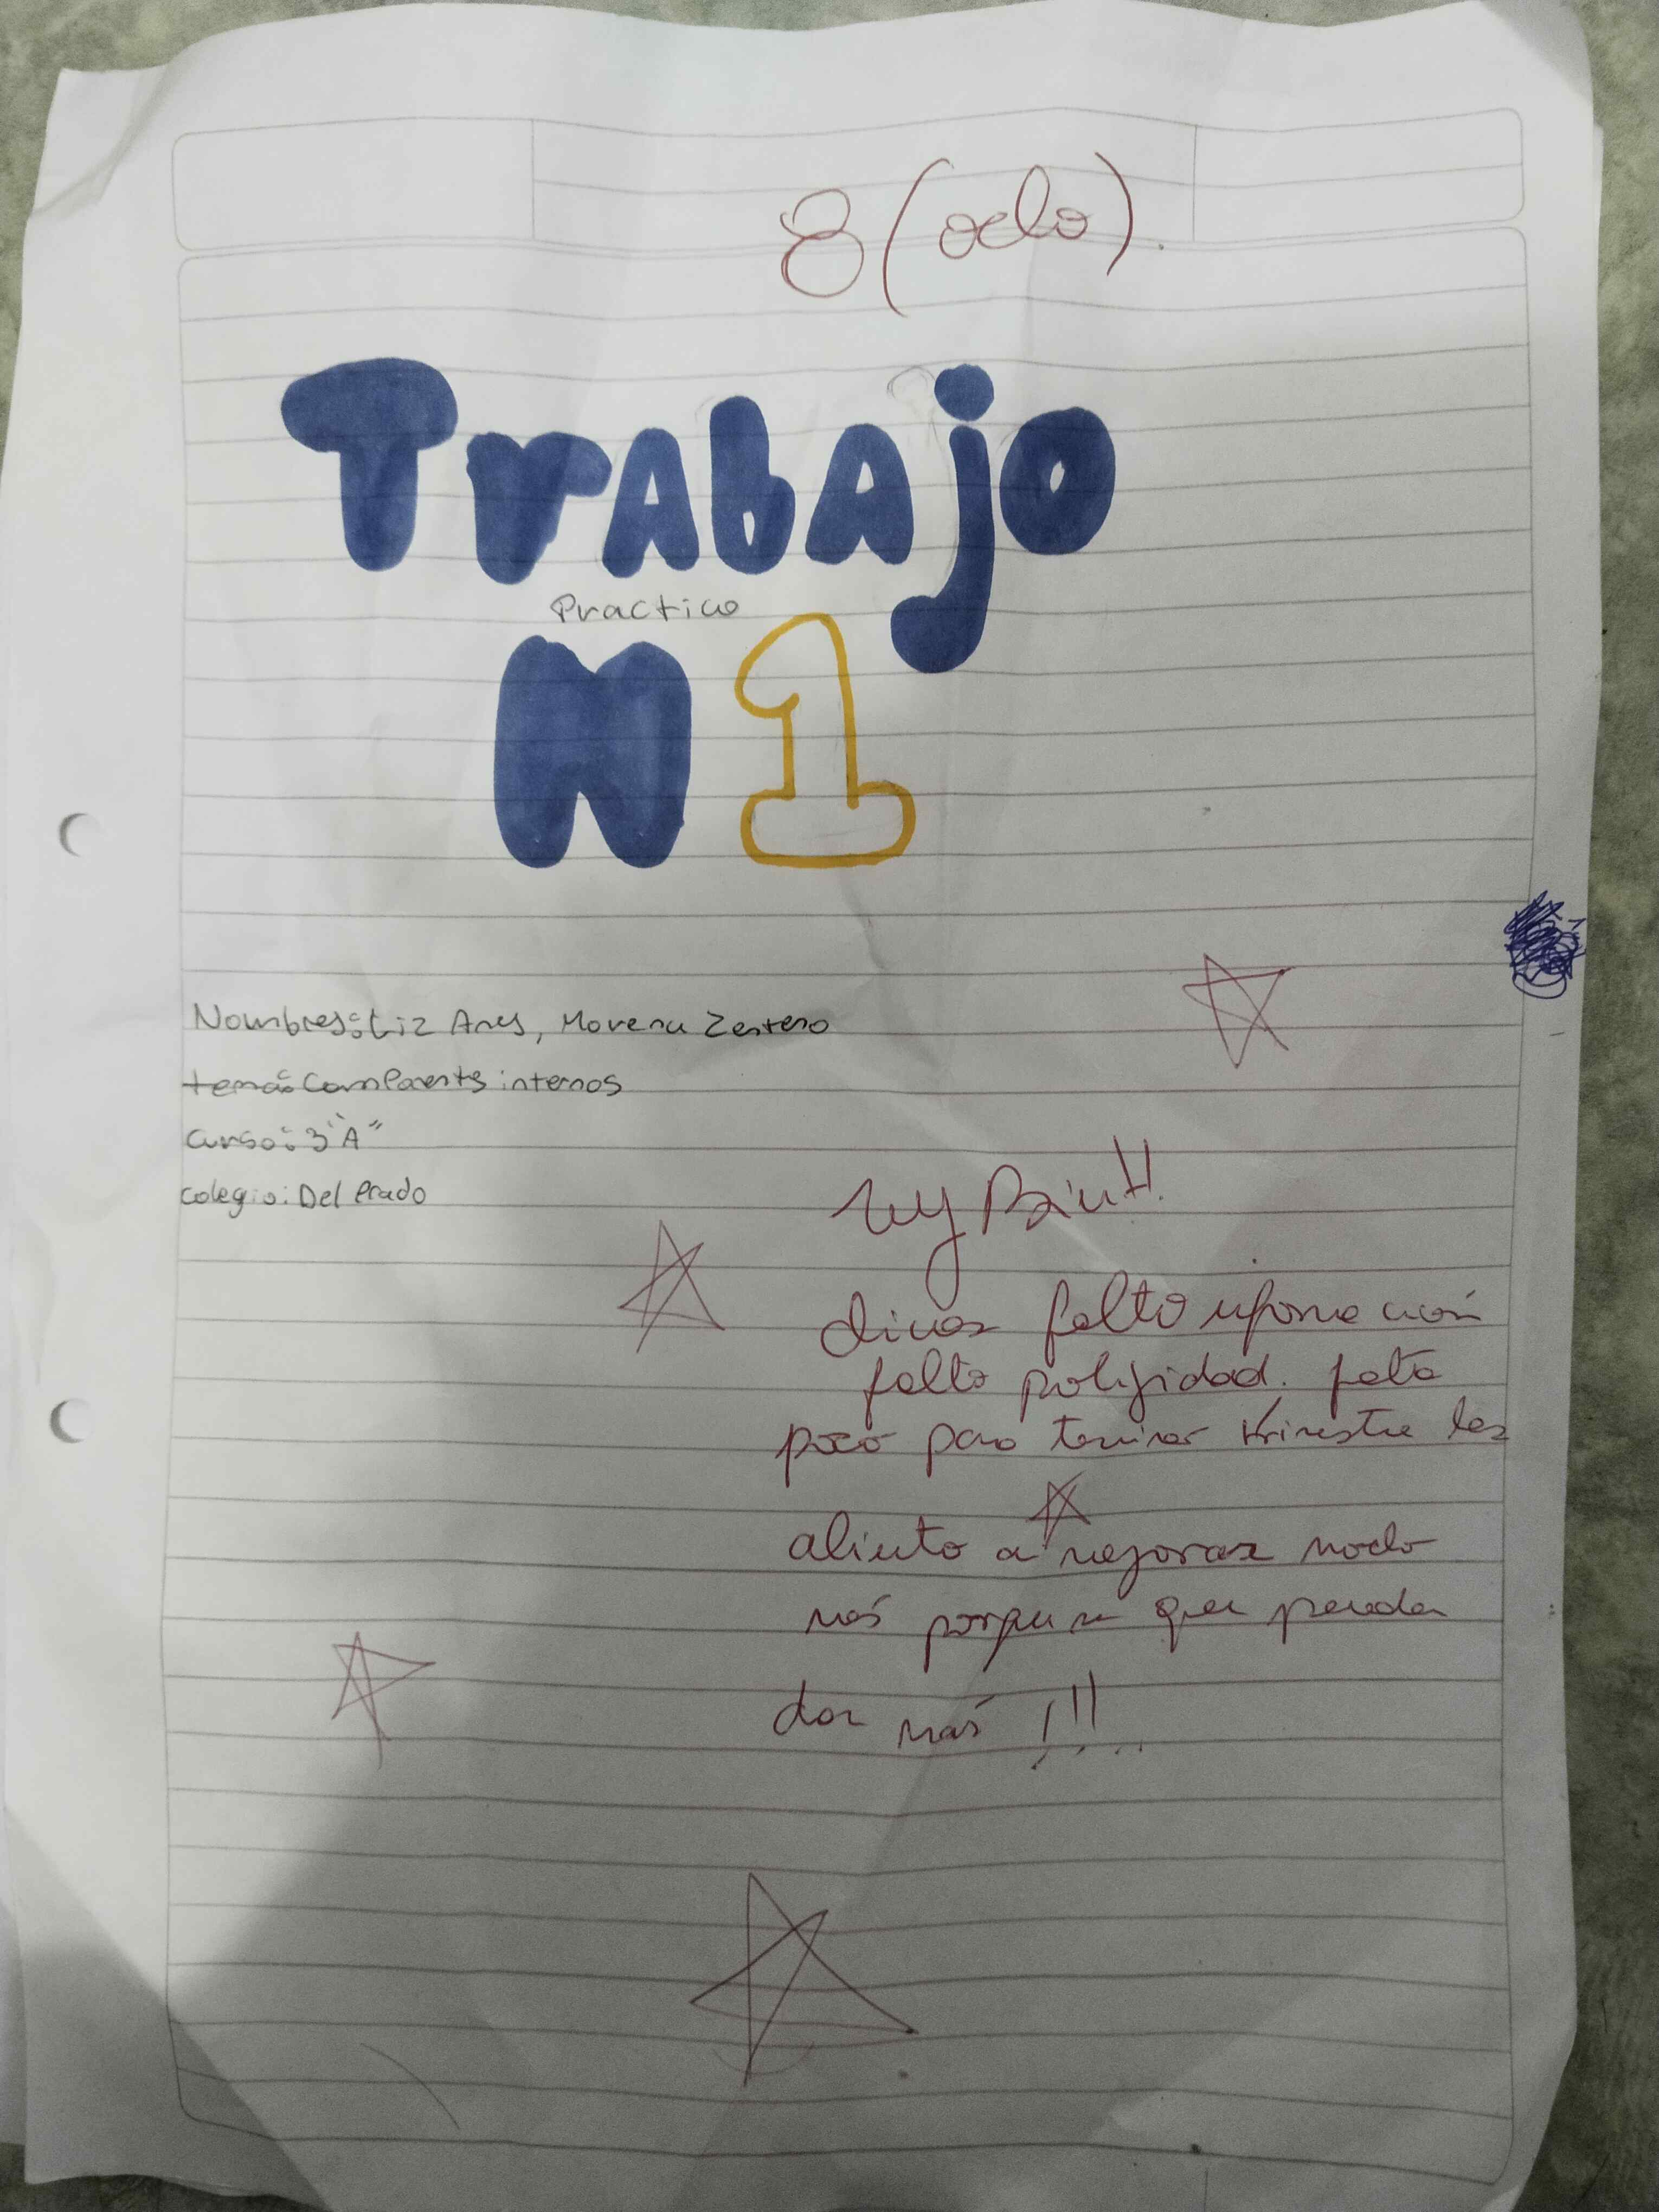 8 (ocho).
Trabajo
Practico
N 1
Nombres: Liz Ares, Morena Zentero
tema: Componentes internos
curso: 3 "A"
colegio: Del Prado
Muy Bien!!
chicas falto información
falto prolijidad. falta
poco para terminar trimestre las
aliento a mejorar mucho
más porque se que pueden
dar más !!!